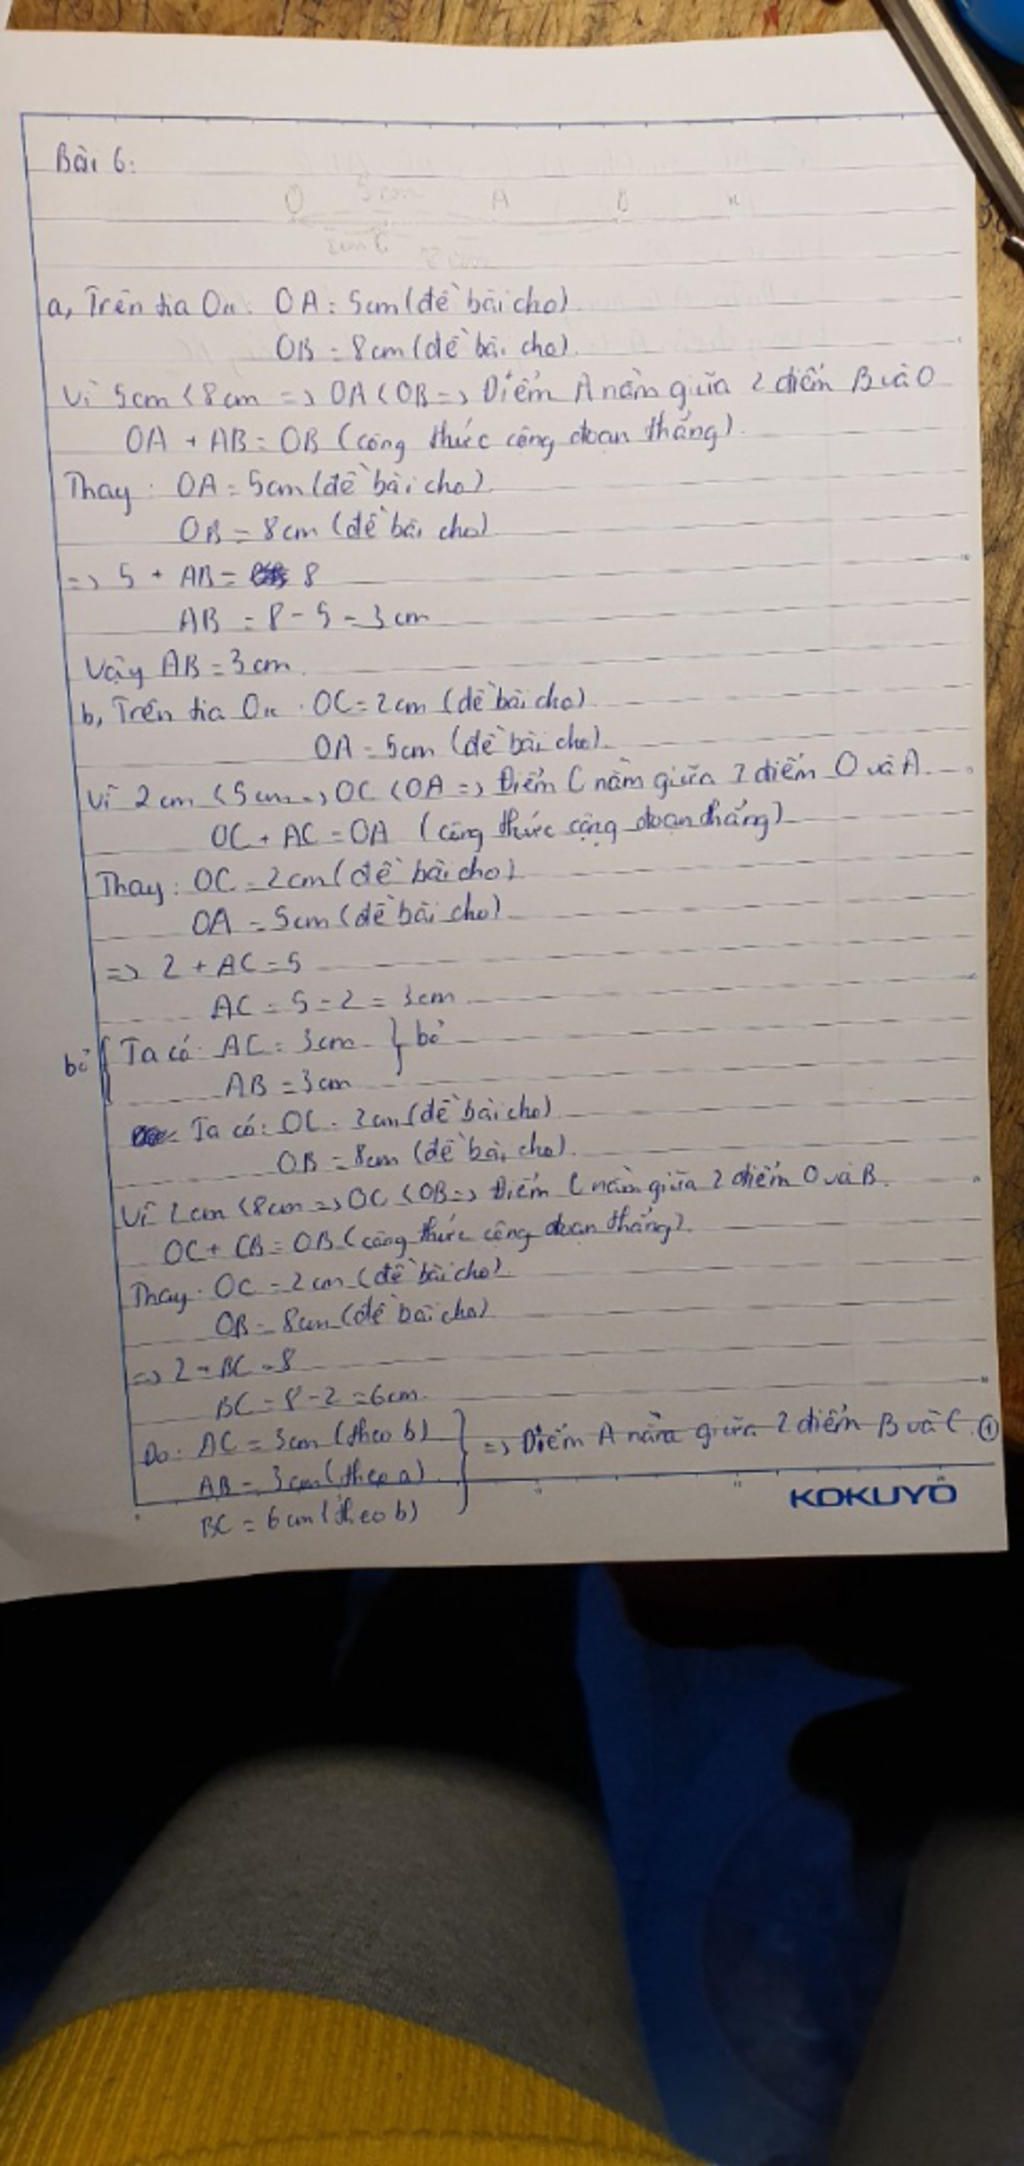 Bài 6:
O 5cm A B x
2cm C
8cm
a, Trên tia Ox: OA = 5cm (đề bài cho)
OB = 8cm (đề bài cho)
Vì 5cm < 8cm => OA < OB => Điểm A nằm giữa 2 điểm B và O
OA + AB = OB (công thức cộng đoạn thẳng).
Thay: OA = 5cm (đề bài cho)
OB = 8cm (đề bài cho)
=> 5 + AB = 8
AB = 8 - 5 = 3cm
Vậy AB = 3cm.
b, Trên tia Ox: OC = 2cm (đề bài cho)
OA = 5cm (đề bài cho)
Vì 2cm < 5cm => OC < OA => Điểm C nằm giữa 2 điểm O và A.
OC + AC = OA (công thức cộng đoạn thẳng)
Thay: OC = 2cm (đề bài cho)
OA = 5cm (đề bài cho)
=> 2 + AC = 5
AC = 5 = 2 = 3cm
bỏ { Ta có: AC = 3cm } bỏ
AB = 3cm
Ta có: OC = 2cm (đề bài cho)
OB = 8cm (đề bài cho).
Vì 2cm < 8cm => OC < OB => Điểm C nằm giữa 2 điểm O và B.
OC + CB = OB (công thức cộng đoạn thẳng).
Thay: OC = 2cm (đề bài cho)
OB = 8cm (đề bài cho)
=> 2 + BC = 8
BC = 8 - 2 = 6cm.
Do: AC = 3cm (theo b) } => Điểm A nằm giữa 2 điểm B và C. ①
AB = 3cm (theo a)
BC = 6cm (theo b)
KOKUYO